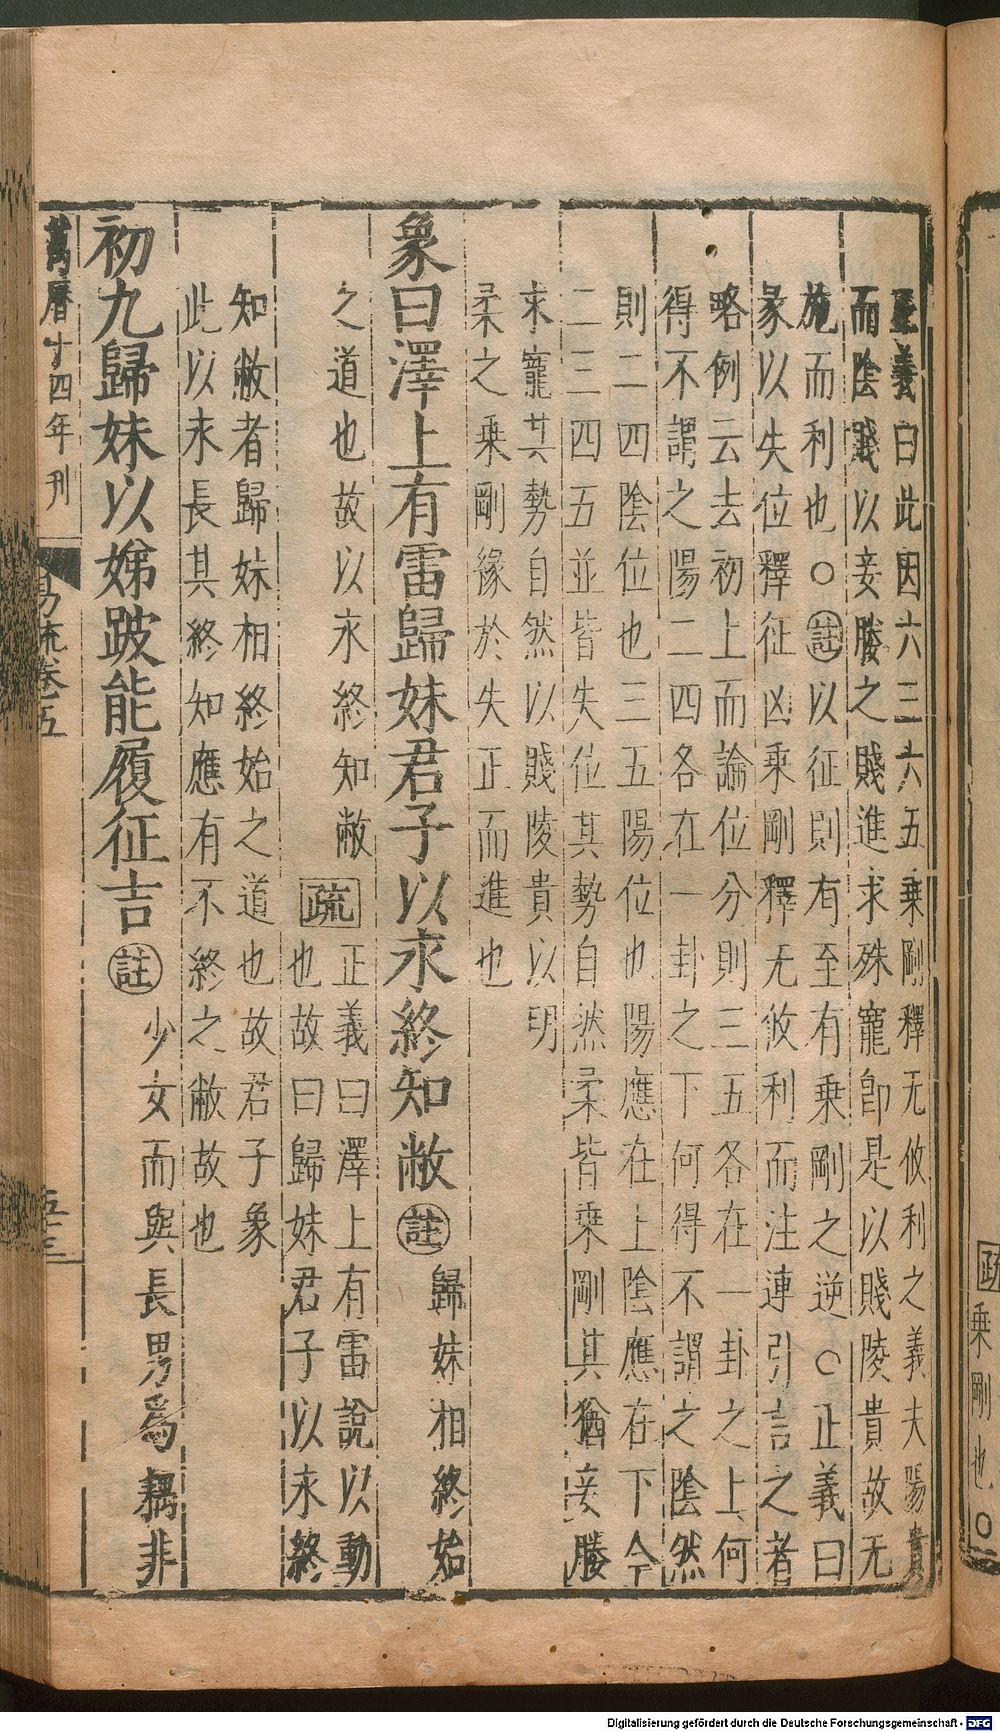 正義曰此因六三六五乗剛釋无攸利之義夫陽貴
而陰賤以妾媵之賤進求殊寵卽是以賤陵貴故无
施而利也○註以征則有至有乗剛之逆○正義曰
彖以失位釋征凶乗剛釋无攸利而注連引言之者
略例云去初上而論位分則三五各在一卦之上何
得不謂之陽二四各在一卦之下何得不謂之陰然
則二四陰位也三五陽位也陽應在上陰應在下今
二三四五並皆失位其勢自然柔皆乗剛其猶妾媵
求寵其勢自然以賤陵貴以明
柔之乗剛緣於失正而進也
象曰澤上有雷歸妹君子以永終知敝註歸妹相終始
之道也故以永終知敝
疏正義曰澤上有雷說以動
也故曰歸妹君子以永終
知敝者歸妹相終始之道也故君子象
此以永長其終知應有不終之敝故也
初九歸妹以娣跛能履征吉註少女而與長男爲耦非
萬曆十四年刊
易疏卷五
五十三
疏
乗剛也○
Digitalisierung gefördert durch die Deutsche Forschungsgemeinschaft - DFG